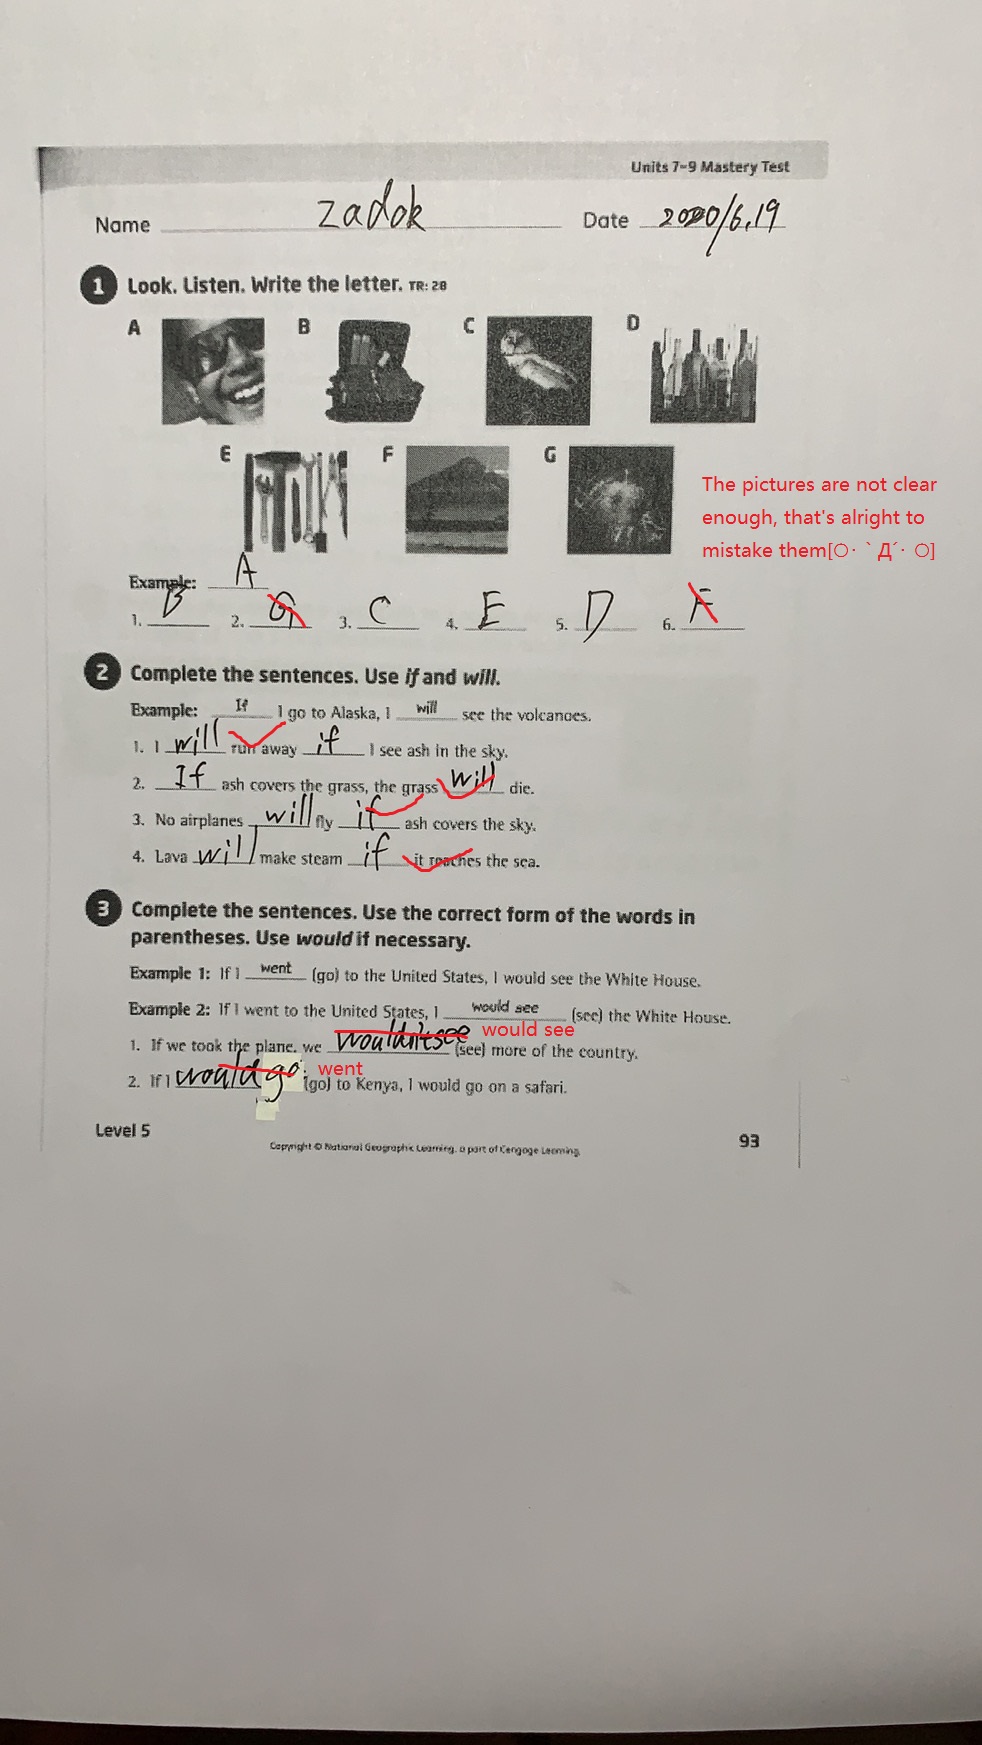 Units 7-9 Mastery Test
Name zadok Date 2020/6.19
1 Look. Listen. Write the letter. TR: 28
A B C D
E F G
The pictures are not clear
enough, that's alright to
mistake them[○･｀Д´･ ○]
Example: A
1. B 2. G 3. C 4. E 5. D 6. F
2 Complete the sentences. Use if and will.
Example: If I go to Alaska, I will see the volcanoes.
1. I will run away if I see ash in the sky.
2. If ash covers the grass, the grass will die.
3. No airplanes will fly if ash covers the sky.
4. Lava will make steam if it reaches the sea.
3 Complete the sentences. Use the correct form of the words in
parentheses. Use would if necessary.
Example 1: If I went (go) to the United States, I would see the White House.
Example 2: If I went to the United States, I would see (see) the White House.
would see
1. If we took the plane, we wouldn't see (see) more of the country.
went
2. If I would go (go) to Kenya, I would go on a safari.
Level 5
Copyright © National Geographic Learning, a part of Cengage Learning.
93